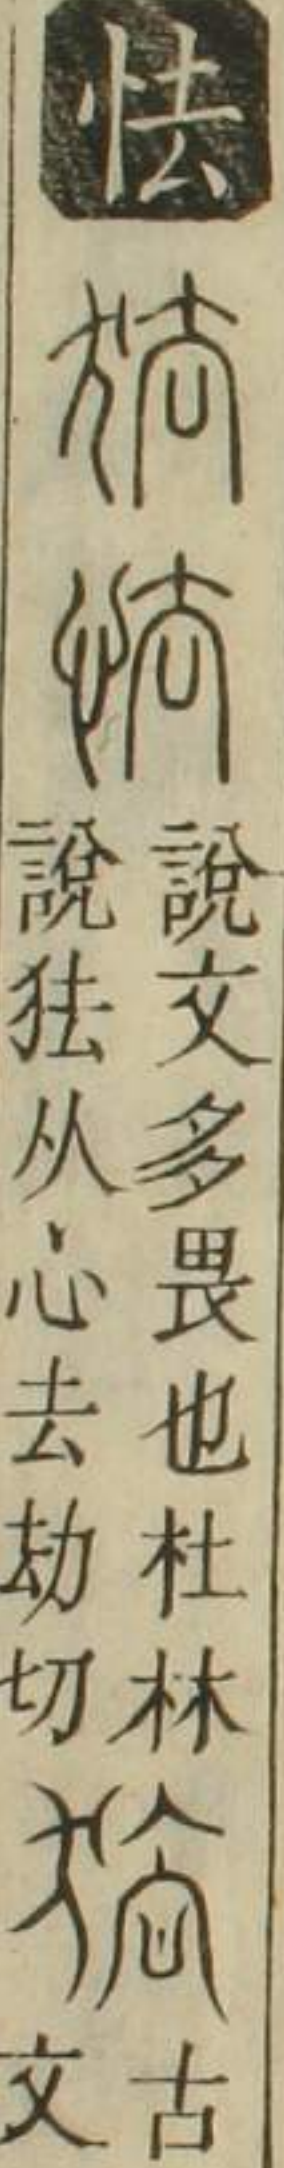 怯
㹤
怯
說文多畏也杜林
說㹤从心去劫切
古
文